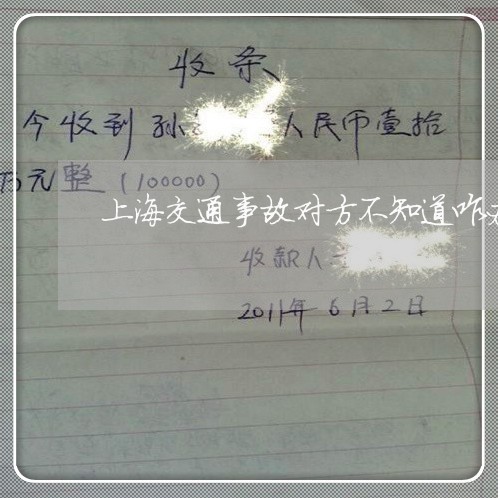 收条
今收到孙 人民币壹拾
万元整（100000）
上海交通事故对方不知道咋
收款人
2011年6月2日